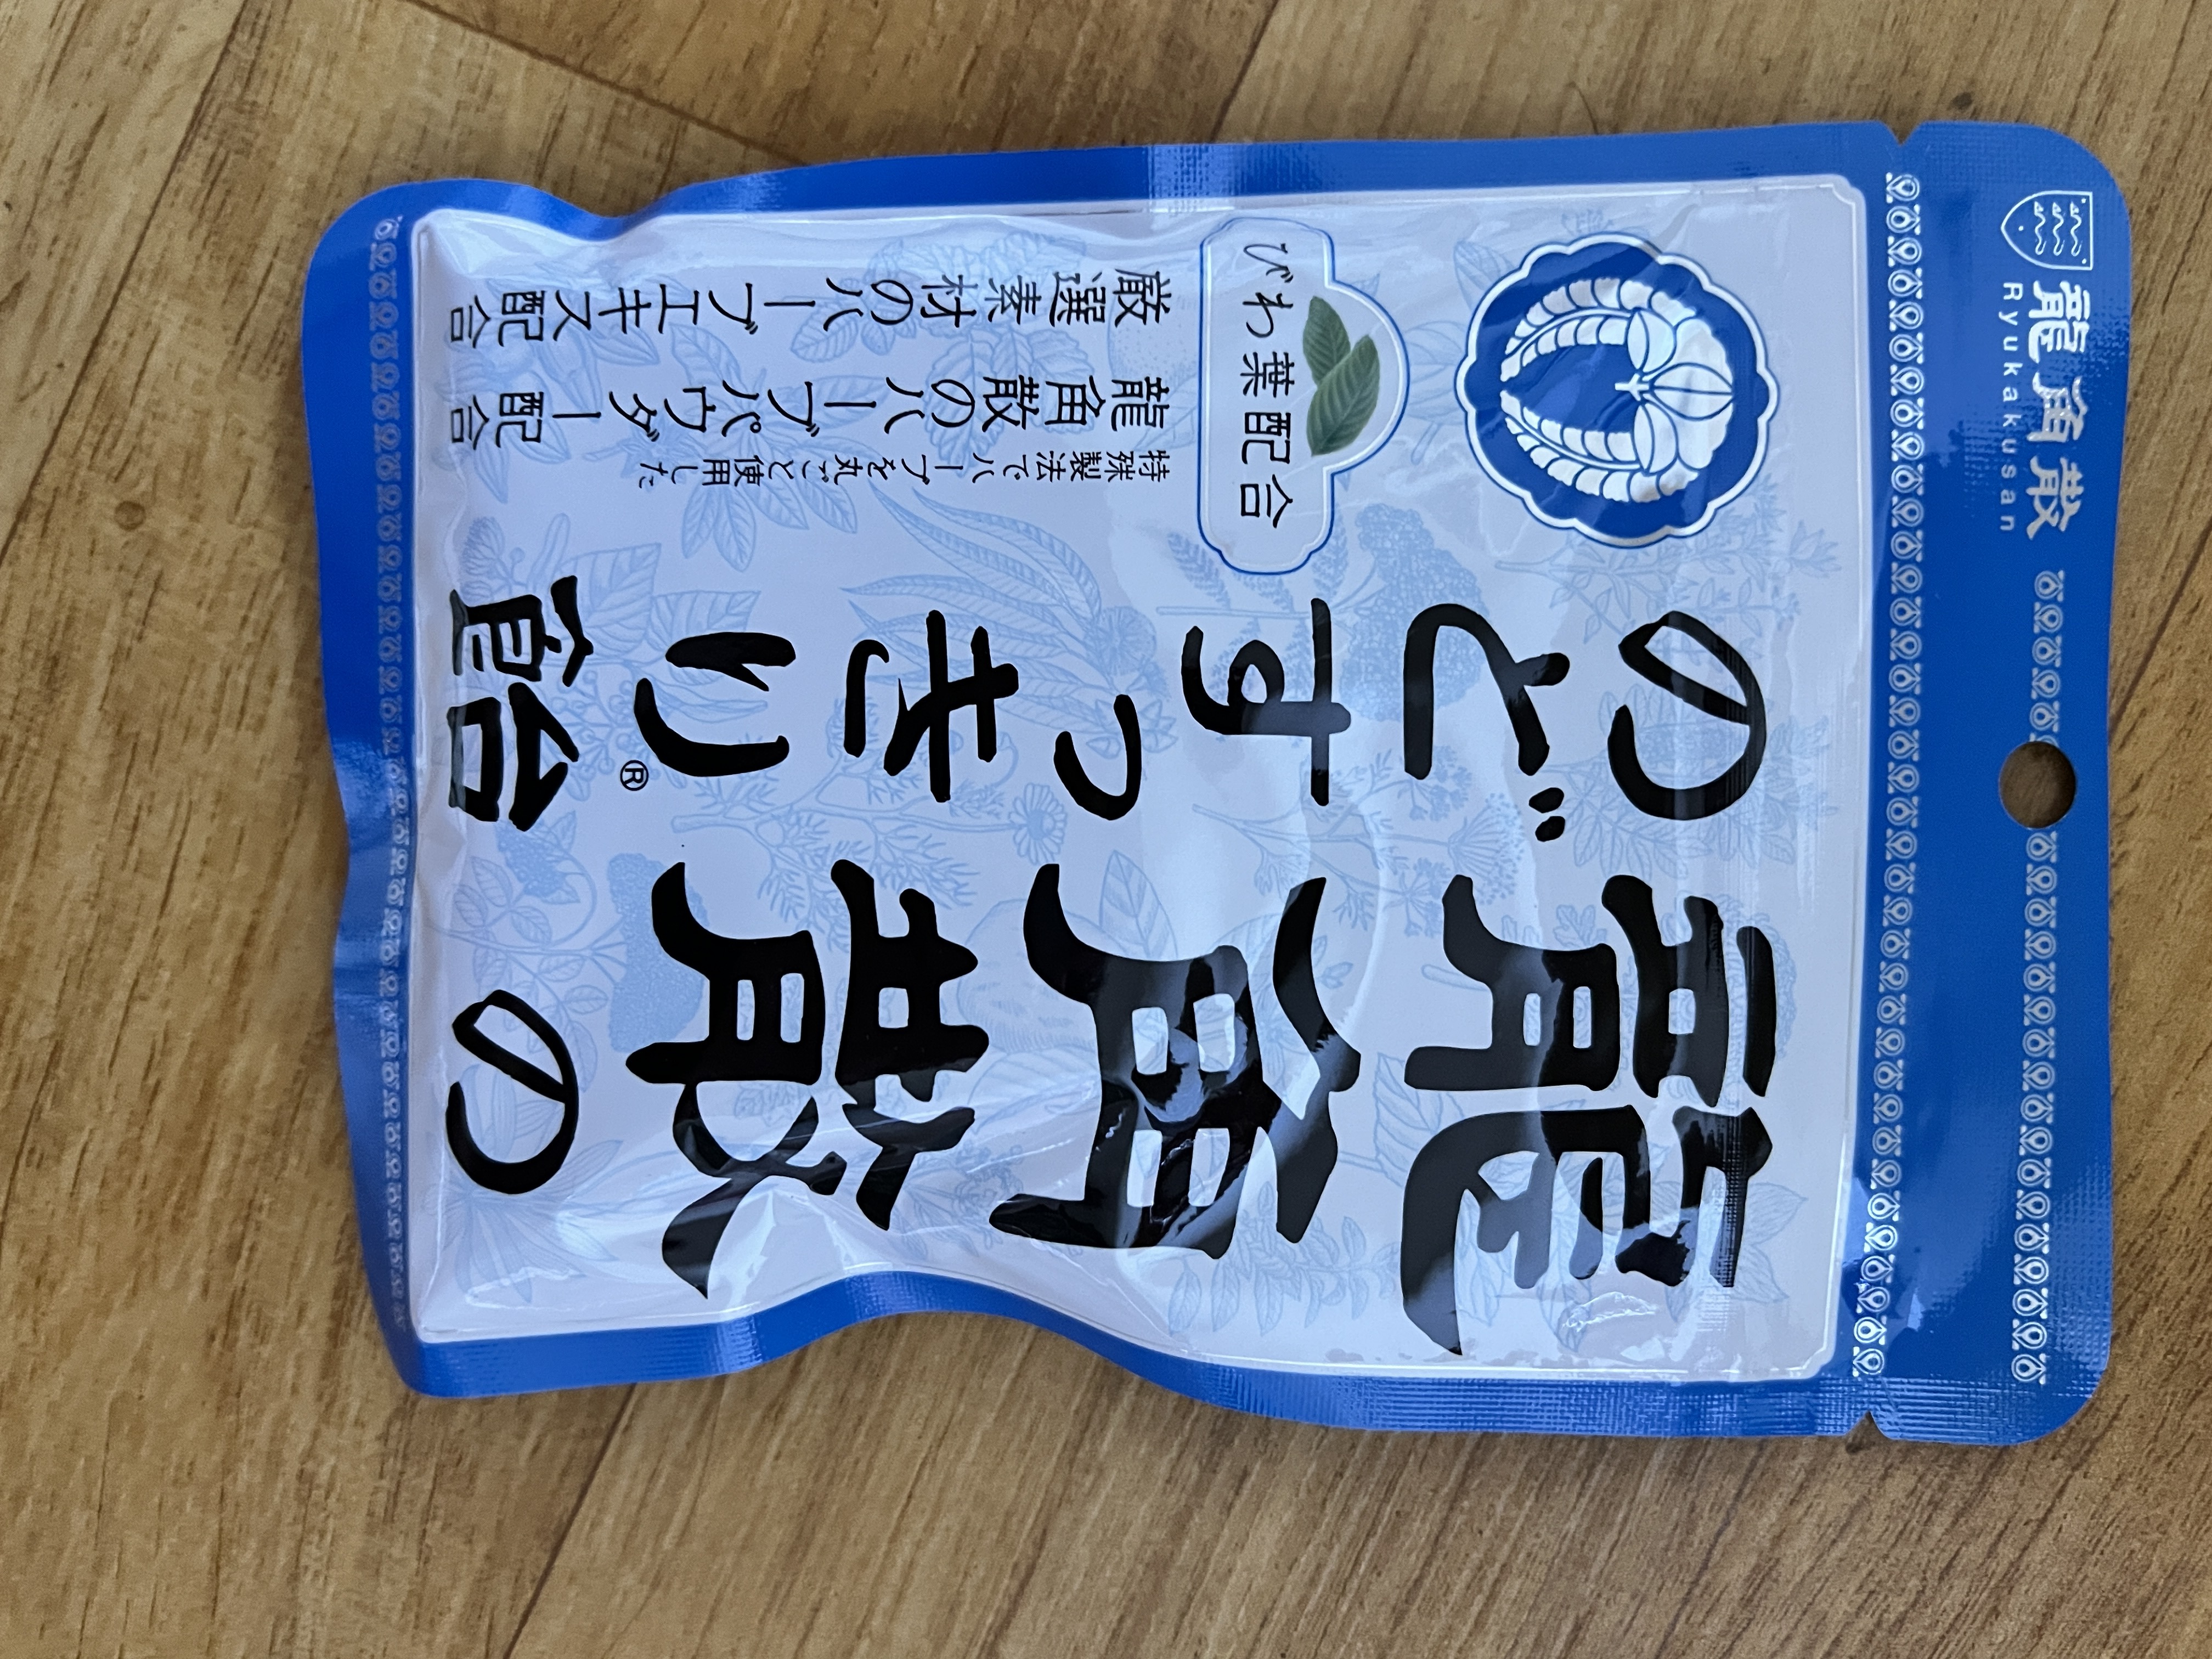 龍角散
Ryukakusan
龍角散の
のどすっきり®飴
びわ葉配合
特殊製法でハーブを丸ごと使用した
龍角散のハーブパウダー配合
厳選素材のハーブエキス配合